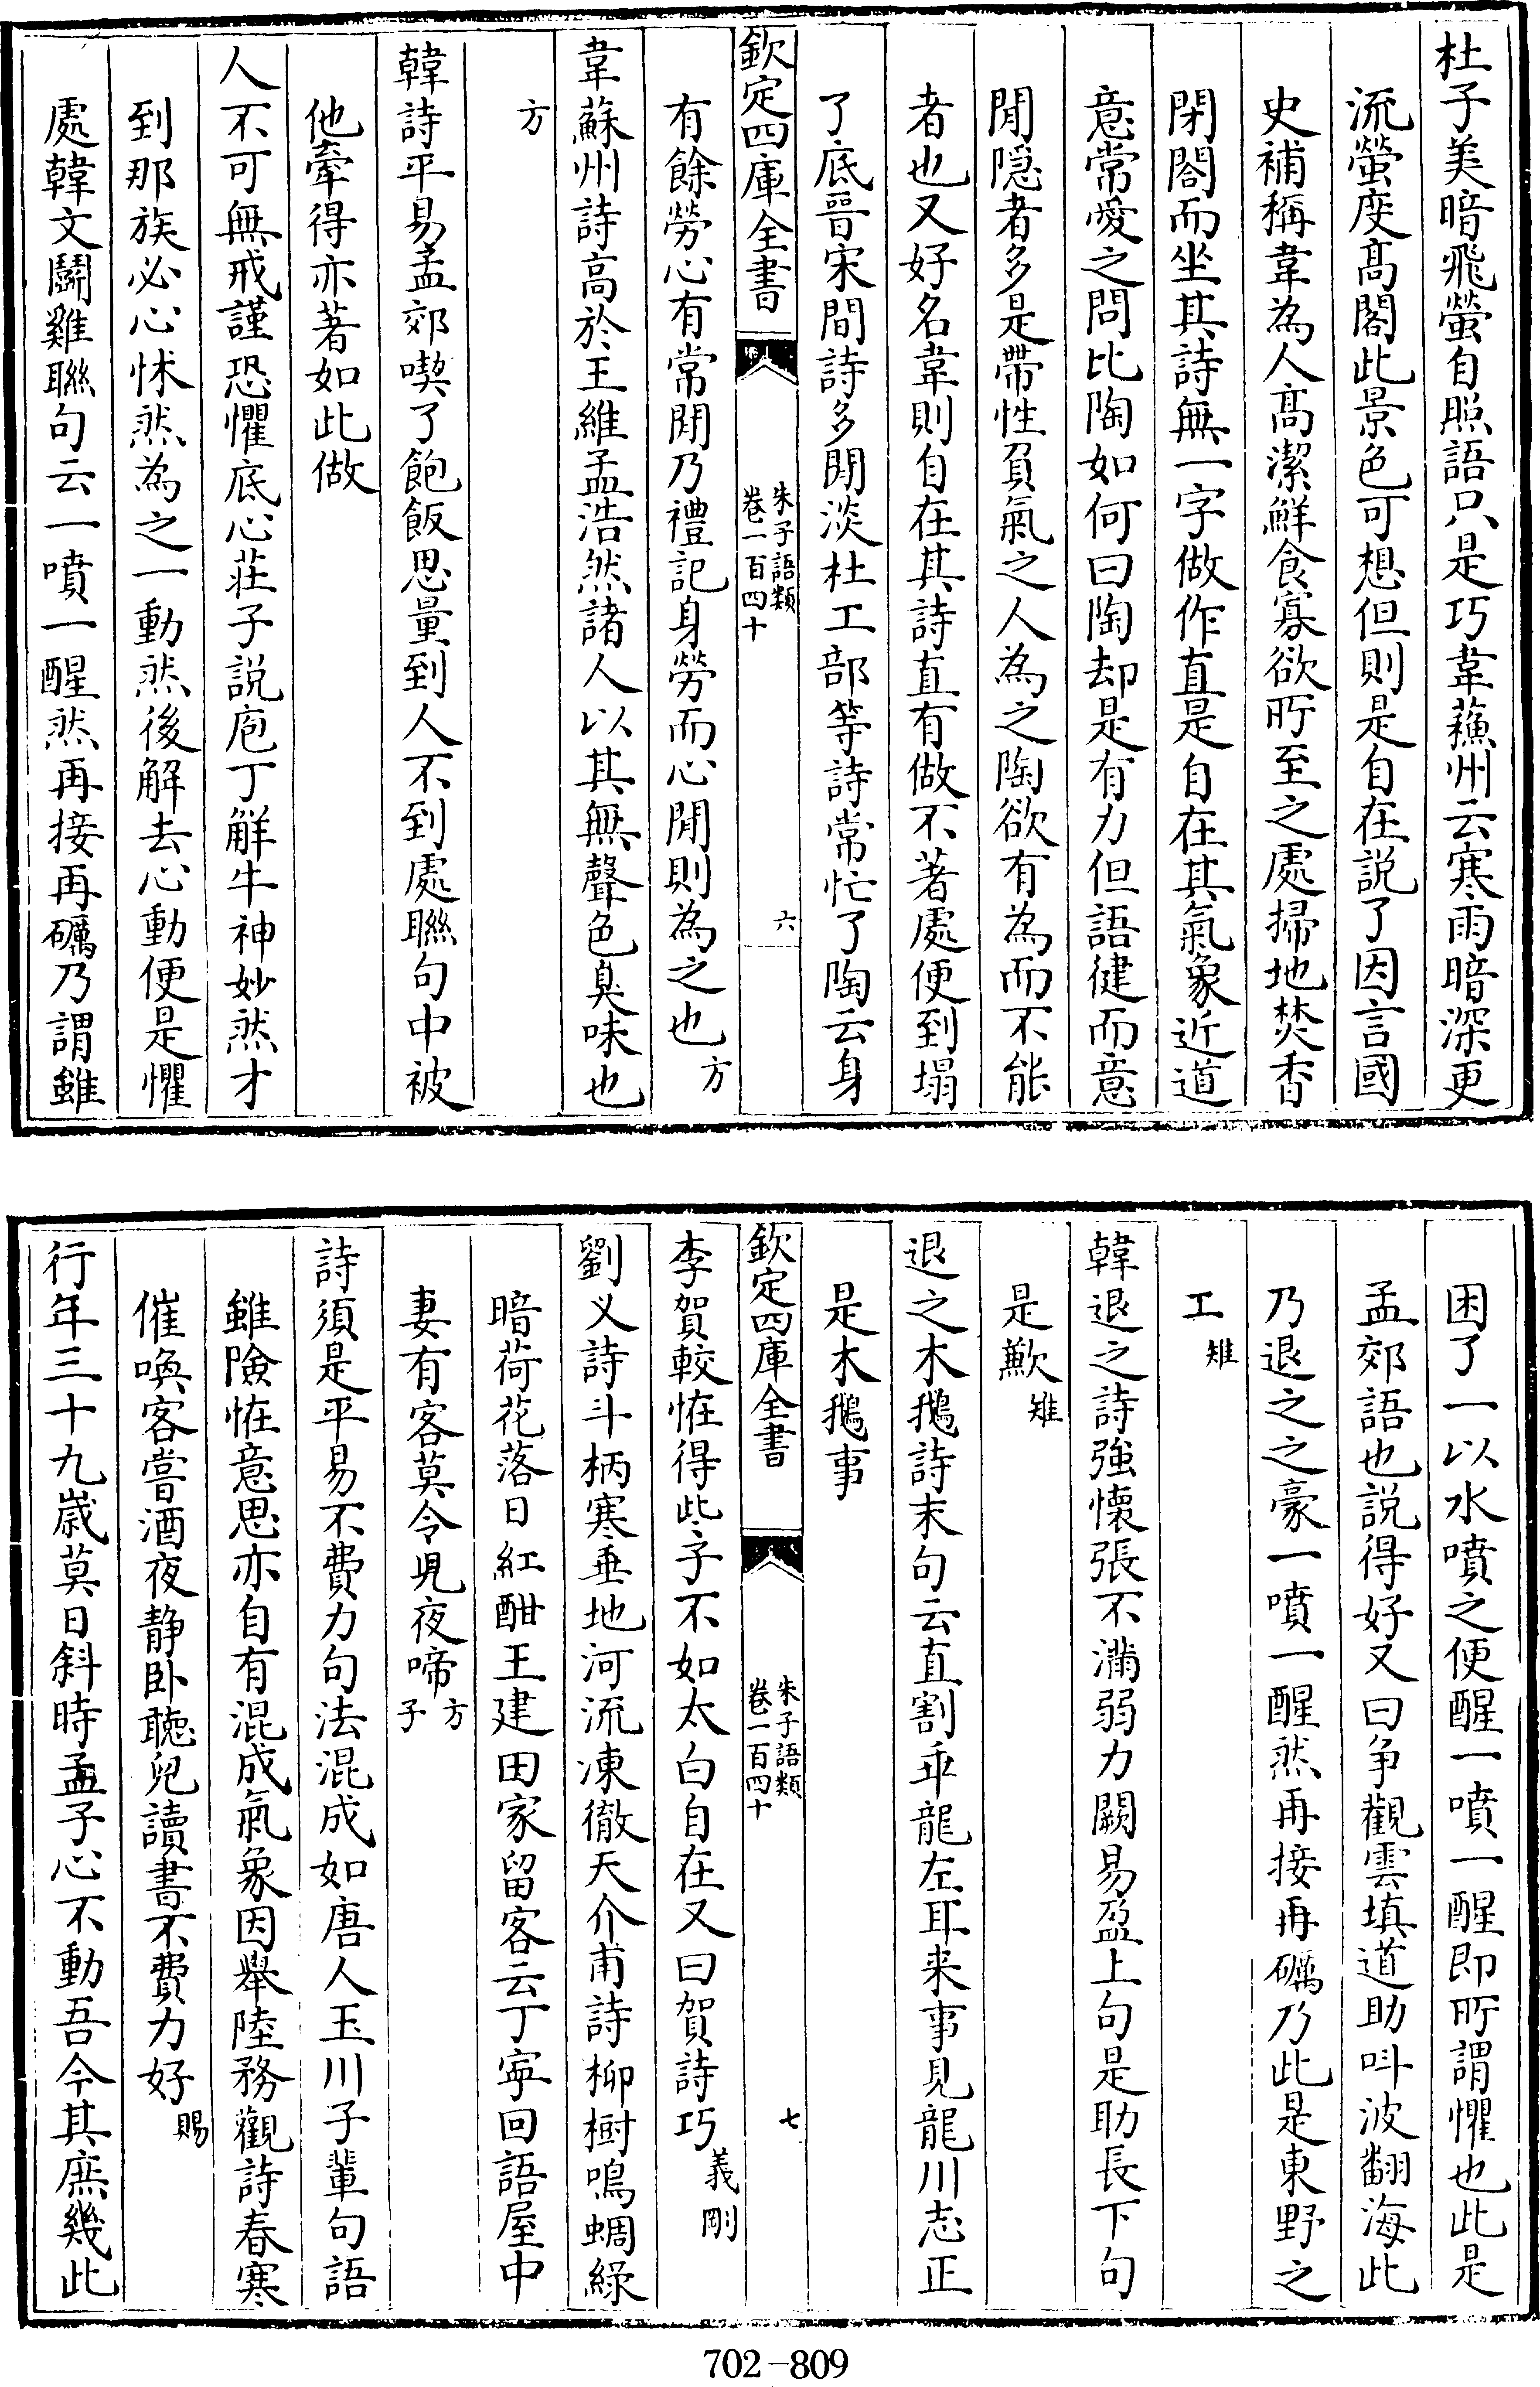 杜子美暗飛螢自照語只是巧韋蘓州云寒雨暗深更
流螢度髙閣此景色可想但則是自在説了因言國
史補稱韋為人髙潔鮮食寡欲所至之處掃地焚香
閉閤而坐其詩無一字做作直是自在其氣象近道
意常愛之問比陶如何曰陶却是有力但語健而意
閒隠者多是帶性負氣之人為之陶欲有為而不能
者也又好名韋則自在其詩直有做不著處便到塌
了底晉宋間詩多閒淡杜工部等詩常忙了陶云身
欽定四庫全書
朱子語類
卷一百四十
六
有餘勞心有常閒乃禮記身勞而心閒則為之也方
韋蘇州詩高於王維孟浩然諸人以其無聲色臭味也
方
韓詩平易孟郊喫了飽飯思量到人不到處聯句中被
他牽得亦著如此做
人不可無戒謹恐懼底心莊子説庖丁解牛神妙然才
到那族必心怵然為之一動然後解去心動便是懼
處韓文鬭雞聯句云一噴一醒然再接再礪乃謂雖
困了一以水噴之便醒一噴一醒即所謂懼也此是
孟郊語也説得好又曰爭觀雲填道助呌波翻海此
乃退之之豪一噴一醒然再接再礪乃此是東野之
工雉
韓退之詩強懷張不滿弱力闕易盈上句是助長下句
是歉雉
退之木鵝詩末句云直割乖龍左耳来事見龍川志正
是木鵝事
欽定四庫全書
朱子語類
卷一百四十
七
李賀較恠得些子不如太白自在又曰賀詩巧義剛
劉义詩斗柄寒垂地河流凍徹天介甫詩栁樹鳴蜩綠
暗荷花落日紅酣王建田家留客云丁寜回語屋中
妻有客莫令兒夜啼方子
詩須是平易不費力句法混成如唐人玉川子輩句語
雖險恠意思亦自有混成氣象因舉陸務觀詩春寒
催喚客嘗酒夜静卧聽兒讀書不費力好賜
行年三十九歲莫日斜時孟子心不動吾今其庶幾此
702-809